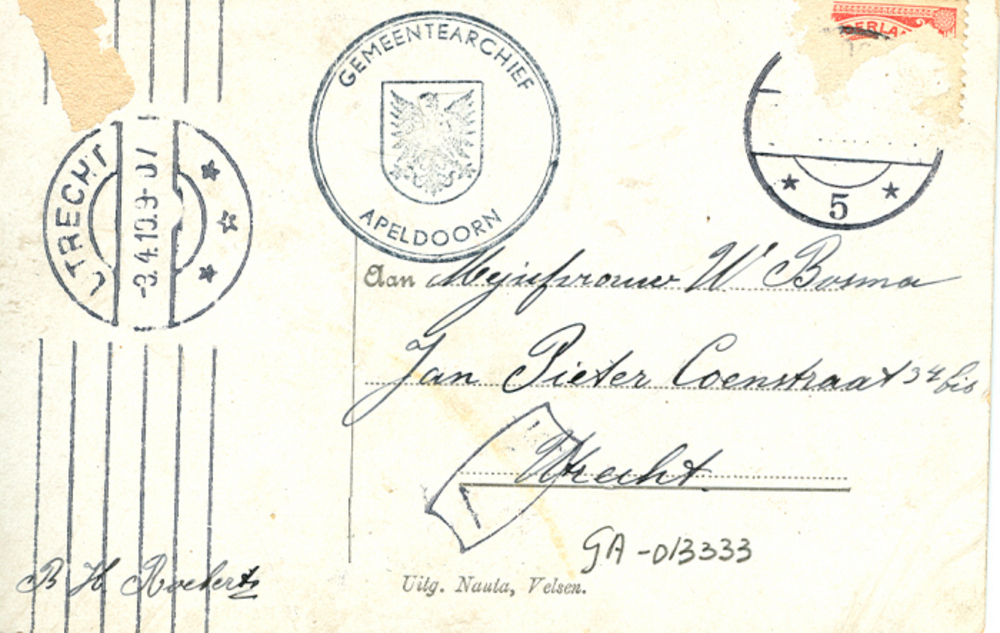 ERLA
GEMEENTEARCHIEF
APELDOORN
UTRECHT
-3.4.10.9- 07
5
Aan Mejufvrouw W Bosma
Jan Pieter Coenstraat 34 bis
Utrecht
1
GA-013333
B H Roebertz
Uitg. Nauta, Velsen.